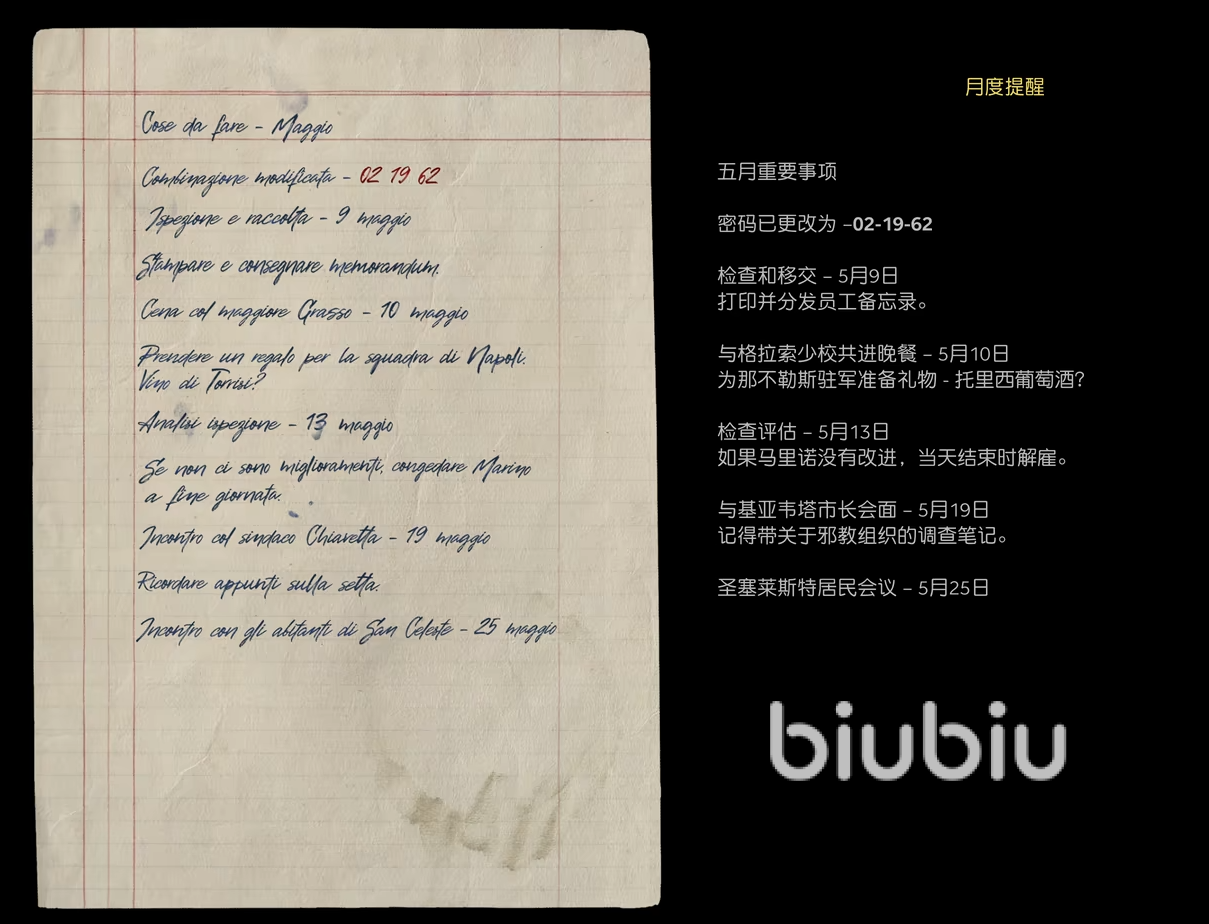 Cose da fare – Maggio
Combinazione modificata – 02 19 62
Ispezione e raccolta – 9 maggio
Stampare e consegnare memorandum.
Cena col maggiore Grasso – 10 maggio
Prendere un regalo per la squadra di Napoli.
Vino di Torrisi?
Analisi ispezione – 13 maggio
Se non ci sono miglioramenti, congedare Marino
a fine giornata.
Incontro col sindaco Chiavetta – 19 maggio
Ricordare appunti sulla setta.
Incontro con gli abitanti di San Celeste – 25 maggio
月度提醒
五月重要事项
密码已更改为 –02-19-62
检查和移交 – 5月9日
打印并分发员工备忘录。
与格拉索少校共进晚餐 – 5月10日
为那不勒斯驻军准备礼物 - 托里西葡萄酒?
检查评估 – 5月13日
如果马里诺没有改进，当天结束时解雇。
与基亚韦塔市长会面 – 5月19日
记得带关于邪教组织的调查笔记。
圣塞莱斯特居民会议 – 5月25日
biubiu